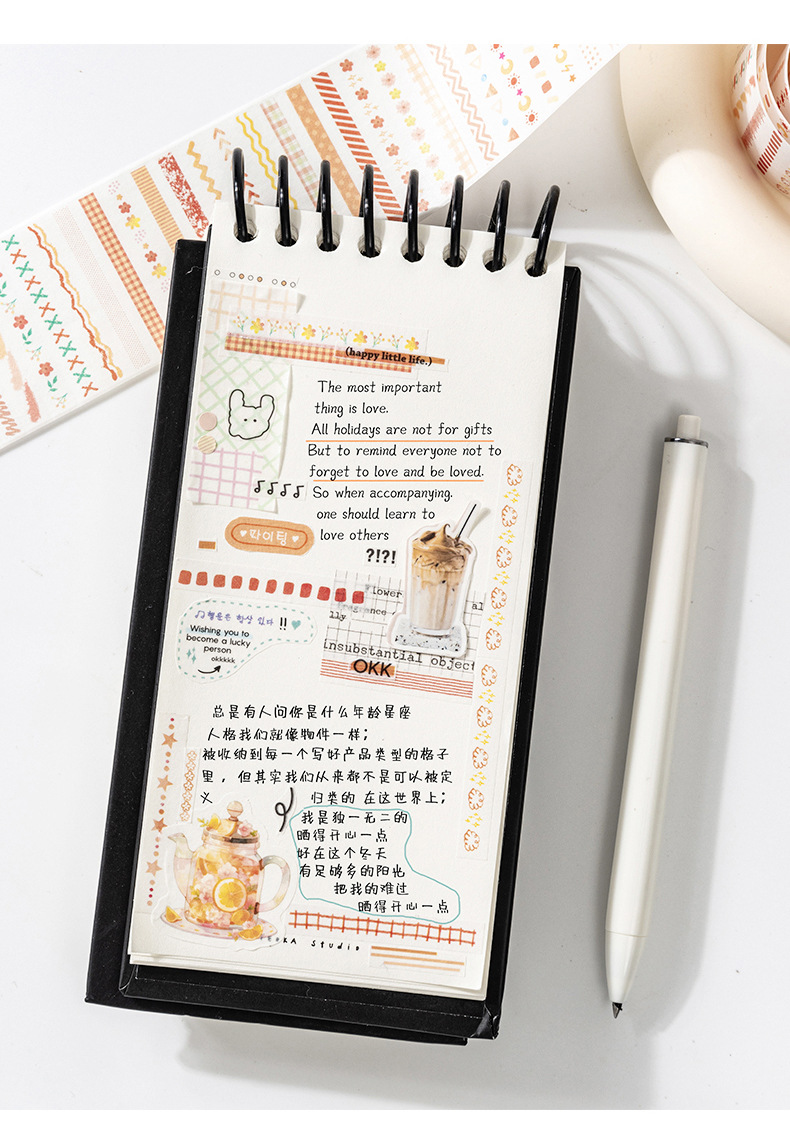 (happy little life.)
The most important
thing is love.
All holidays are not for gifts
But to remind everyone not to
forget to love and be loved.
So when accompanying.
one should learn to
love others
파이팅
?!?!
Flower
al
fragrance
lly
insubstantial object
OKK
행운은 항상 있다 !!
Wishing you to
become a lucky
person
okkkkk
总是有人问你是什么年龄星座
人格我们就像物件一样；
被收纳到每一个写好产品类型的格子
里，但其实我们从来都不是可以被定
义 归类的 在这世界上；
我是独一无二的
晒得开心一点
好在这个冬天
有足够多的阳光
把我的难过
晒得开心一点
Studio